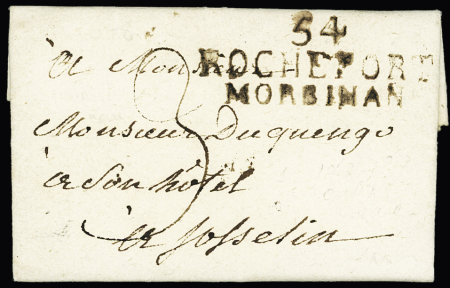 54
ROCHEFORT
MORBIHAN
à Monsieur
Monsieur Duquengo
à Son hôtel
à Josselin
3